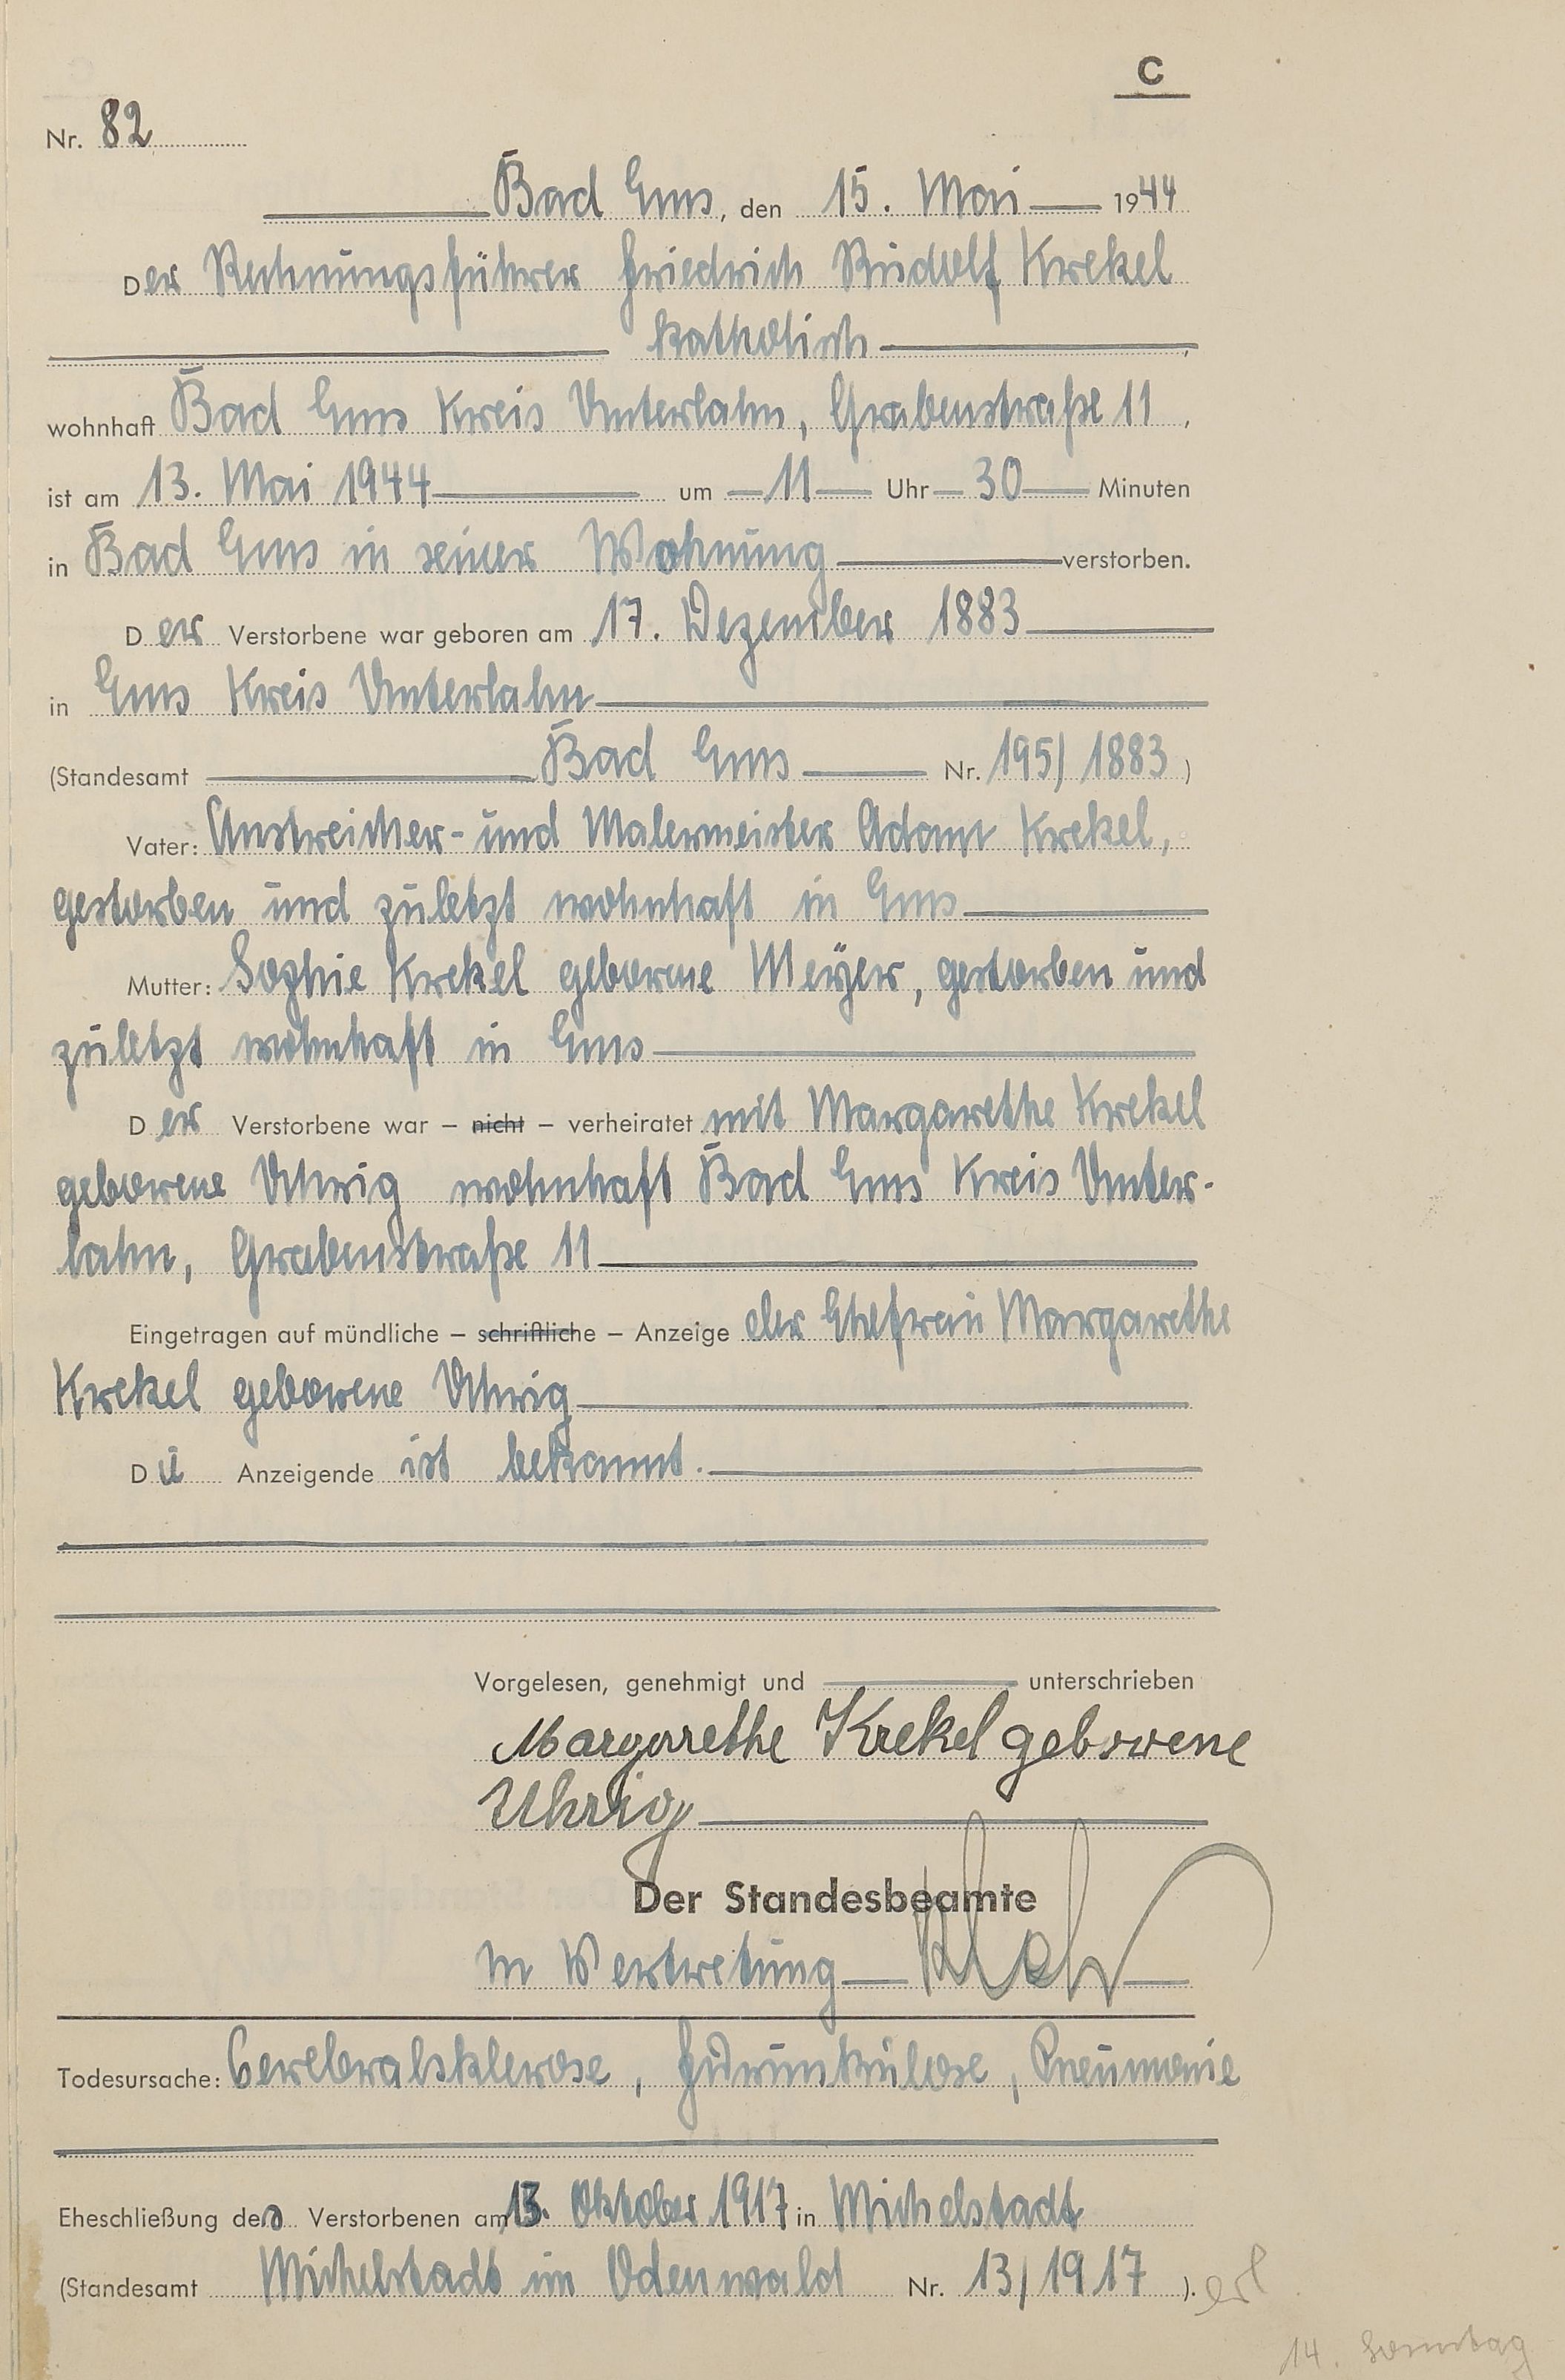 C
Nr. 82
Bad Ems, den 15. Mai 1944
Der Rechnungsführer Friedrich Rudolf Krekel
katholisch,
wohnhaft Bad Ems Kreis Unterlahn, Grabenstraße 11,
ist am 13. Mai 1944 um 11 Uhr 30 Minuten
in Bad Ems in seiner Wohnung verstorben.
Der Verstorbene war geboren am 17. Dezember 1883
in Ems Kreis Unterlahn
(Standesamt Bad Ems Nr. 195/1883)
Vater: Anstreicher- und Malermeister Adam Krekel,
gestorben und zuletzt wohnhaft in Ems
Mutter: Sophie Krekel geborene Meyer, gestorben und
zuletzt wohnhaft in Ems
Der Verstorbene war – nicht – verheiratet mit Margarethe Krekel
geborene Uhrig wohnhaft Bad Ems Kreis Unter-
lahn, Grabenstraße 11
Eingetragen auf mündliche – schriftliche – Anzeige der Ehefrau Margarethe
Krekel geborene Uhrig
Die Anzeigende ist bekannt.
Vorgelesen, genehmigt und unterschrieben
Margarethe Krekel geborene
Uhrig
Der Standesbeamte
In Vertretung
Todesursache: Cerebralsklerose, Furunkulose, Pneumonie
Eheschließung des Verstorbenen am 13. Oktober 1917 in Michelstadt
(Standesamt Michelstadt im Odenwald Nr. 13/1917).
erl
14. Sonntag